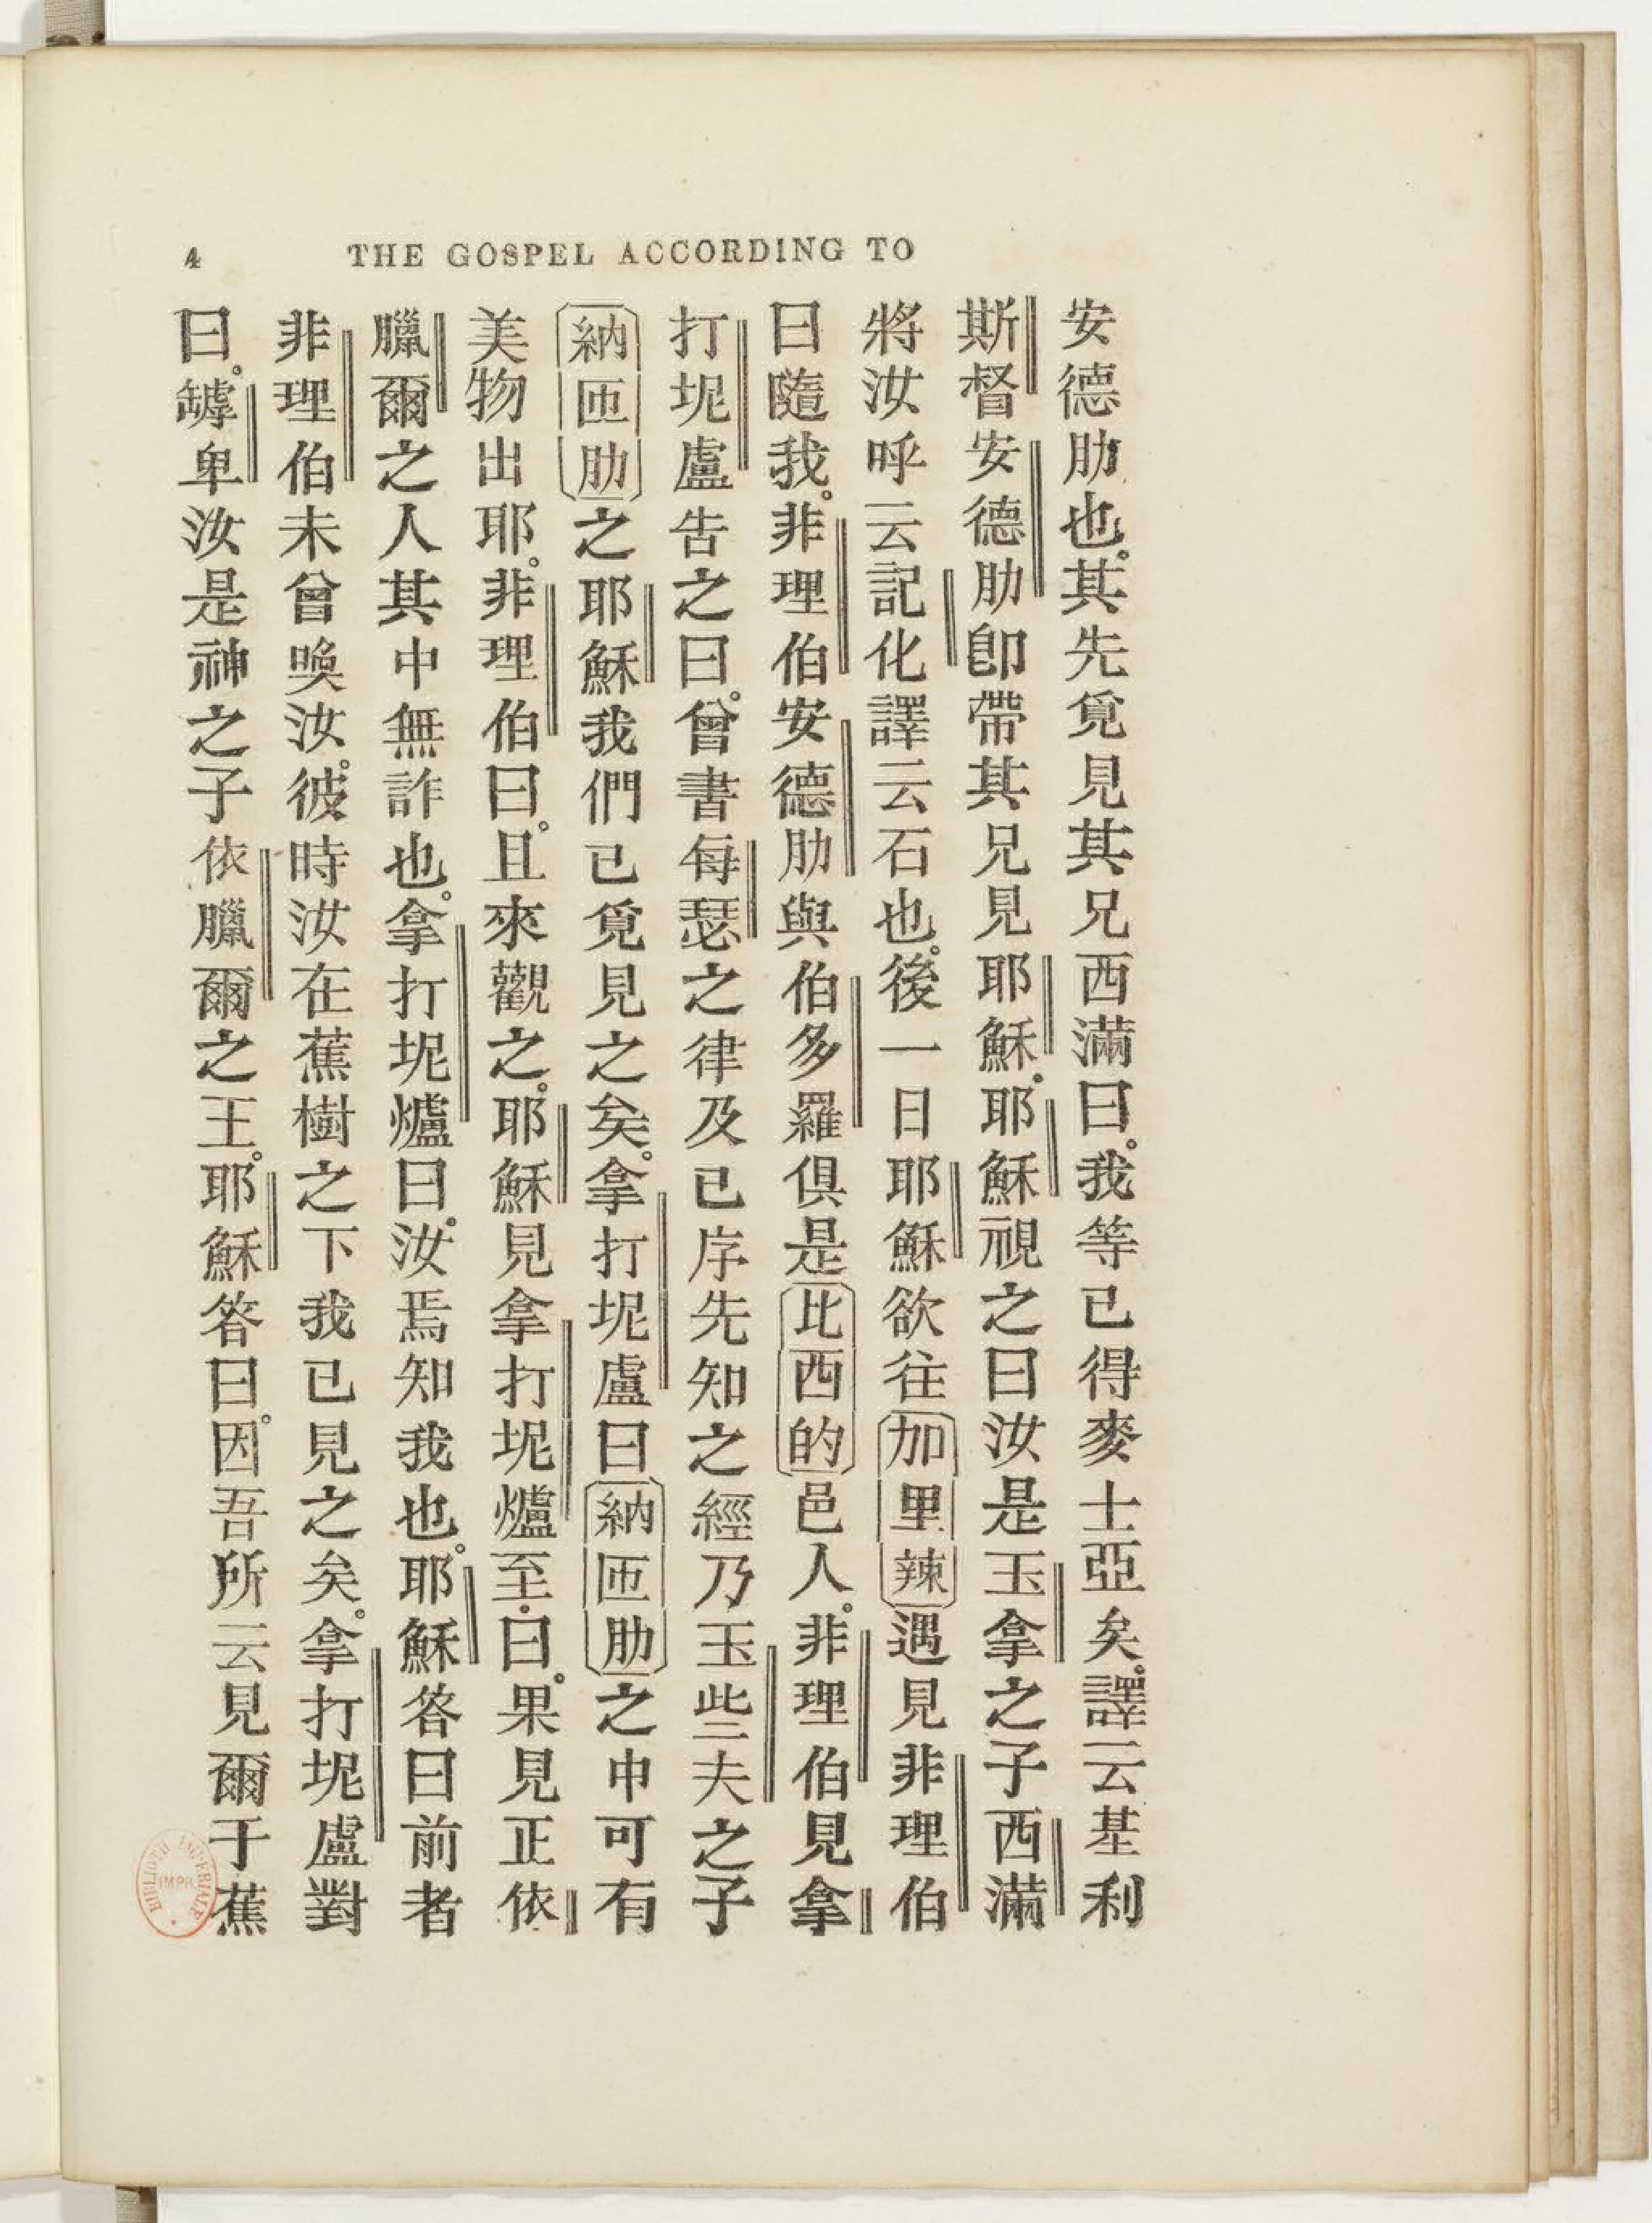 4 THE GOSPEL ACCORDING TO
安德肋也。其先覓見其兄西滿曰。我等已得麥士亞矣。譯云基利
斯督安德肋卽帶其兄見耶穌。耶穌視之曰汝是玉拿之子西滿
將汝呼云記化譯云石也。後一日耶穌欲往加里辣遇見非理伯
曰隨我。非理伯安德肋與伯多羅俱是比西的邑人。非理伯見拿
打坭盧告之曰。曾書每瑟之律及已序先知之經乃玉些夫之子
納匝肋之耶穌我們已覓見之矣。拿打坭盧曰納匝肋之中可有
美物出耶。非理伯曰。且來觀之。耶穌見拿打坭爐至。曰。果見正依
臘爾之人其中無詐也。拿打坭爐曰。汝焉知我也。耶穌答曰前者
非理伯未曾喚汝。彼時汝在蕉樹之下我已見之矣。拿打坭盧對
曰。罅卑汝是神之子依臘爾之王。耶穌答曰。因吾所云見爾于蕉
IMPR.